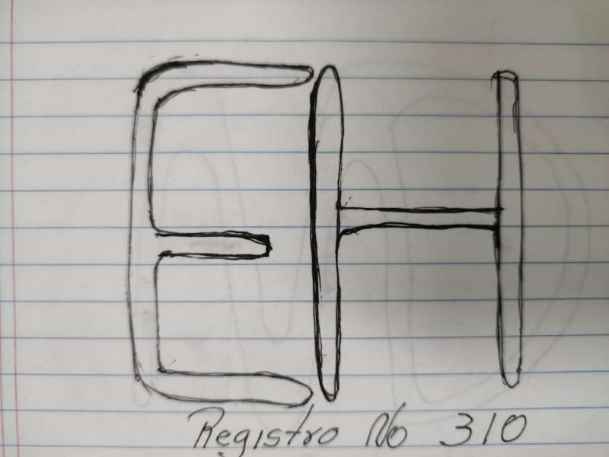 EH
Registro No 310